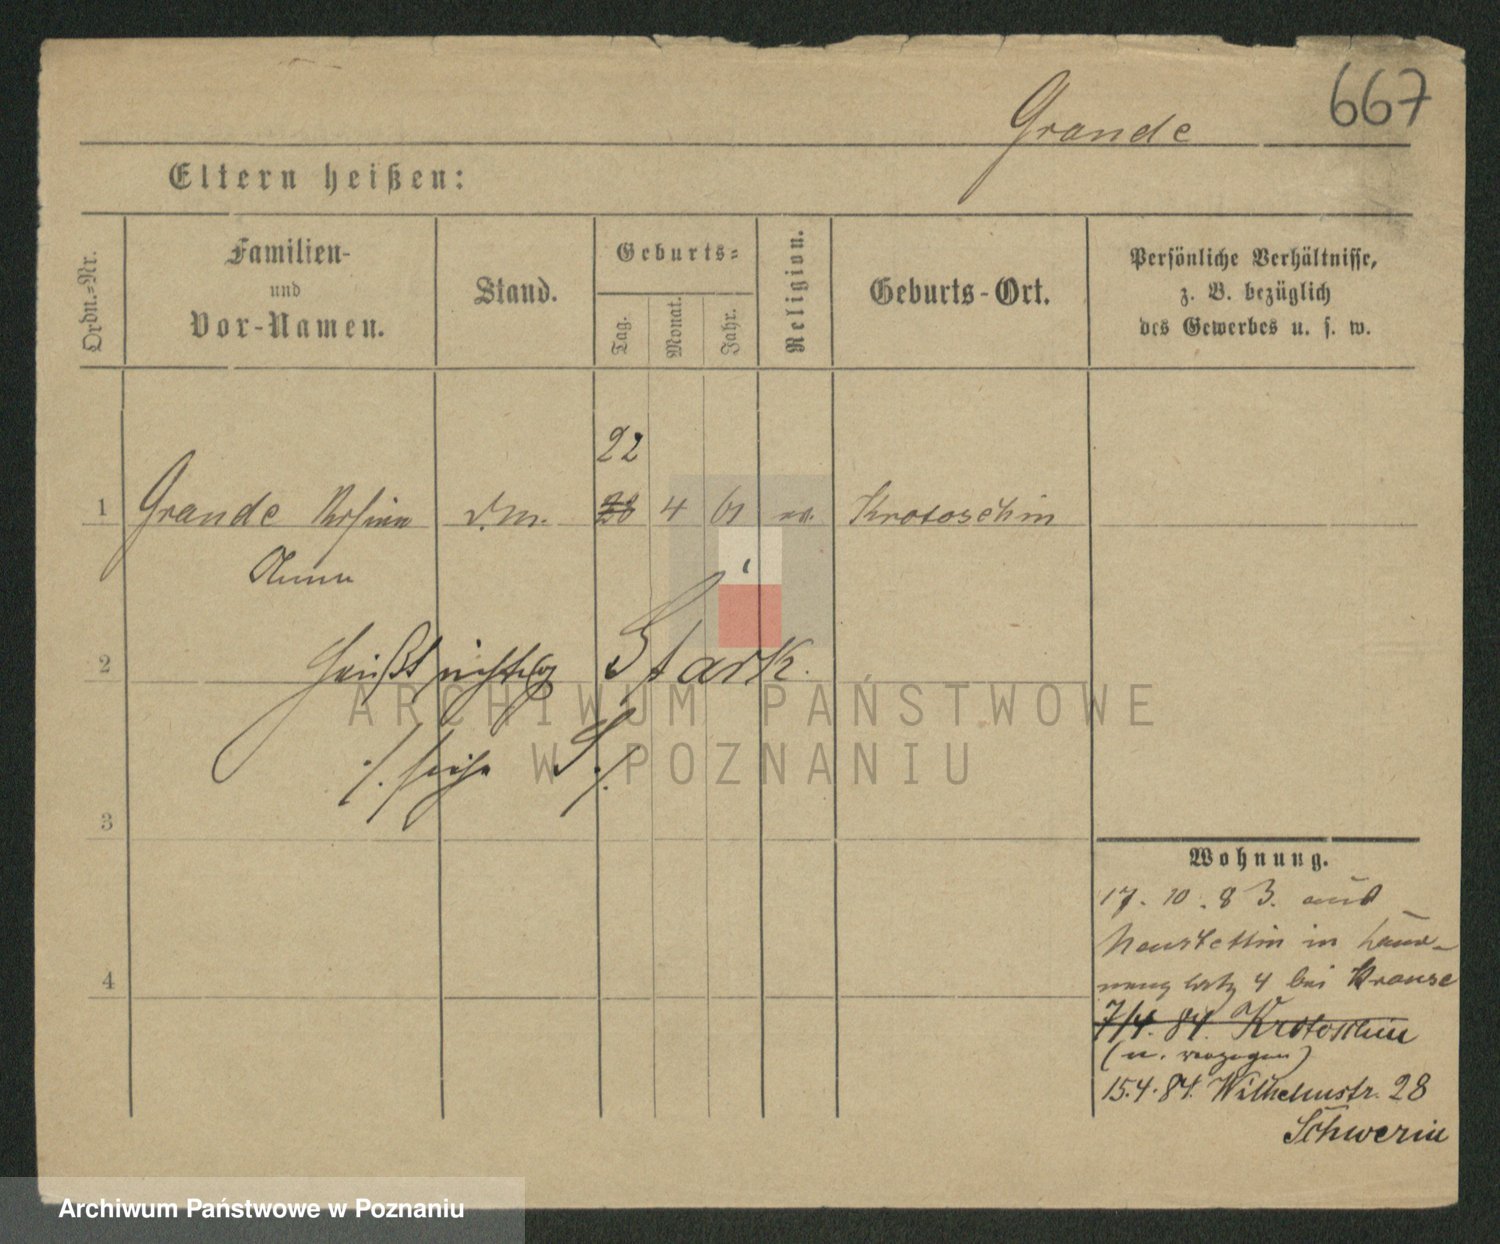 667
Grande
Eltern heißen:
Ordn.-Nr.
Familien-
und
Vor-Namen.
Stand.
Geburts-
Tag.
Monat.
Jahr.
Religion.
Geburts-Ort.
Persönliche Verhältnisse,
z. B. bezüglich
des Gewerbes u. s. w.
22
1 Grande d. M. 28 4 61 Krotoschin
Anna
2 heißt richtig Stark.
./. siehe S ./.
3
4
Wohnung.
17. 10. 83. aus
Neustettin in
4 bei Krause
7/4. 84. Krotoschin
(n. verzogen)
15.4.84. Wilhelmstr. 28
Schwerin
ARCHIWUM PAŃSTWOWE
W POZNANIU
Archiwum Państwowe w Poznaniu